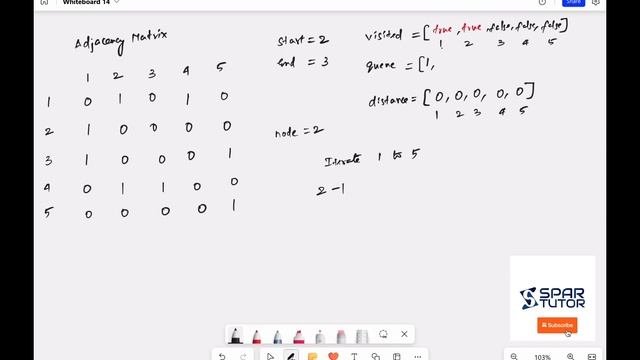 Whiteboard 14
Share
Adjacency Matrix
1 2 3 4 5
1 0 1 0 1 0
2 1 0 0 0 0
3 1 0 0 0 1
4 0 1 1 0 0
5 0 0 0 0 1
start = 2
end = 3
node = 2
visited = [true, true, false, false, false]
1 2 3 4 5
queue = [1,
distance = [0, 0, 0, 0, 0]
1 2 3 4 5
Iterate 1 to 5
2 - 1
SPAR
TUTOR
Subscribe
103%